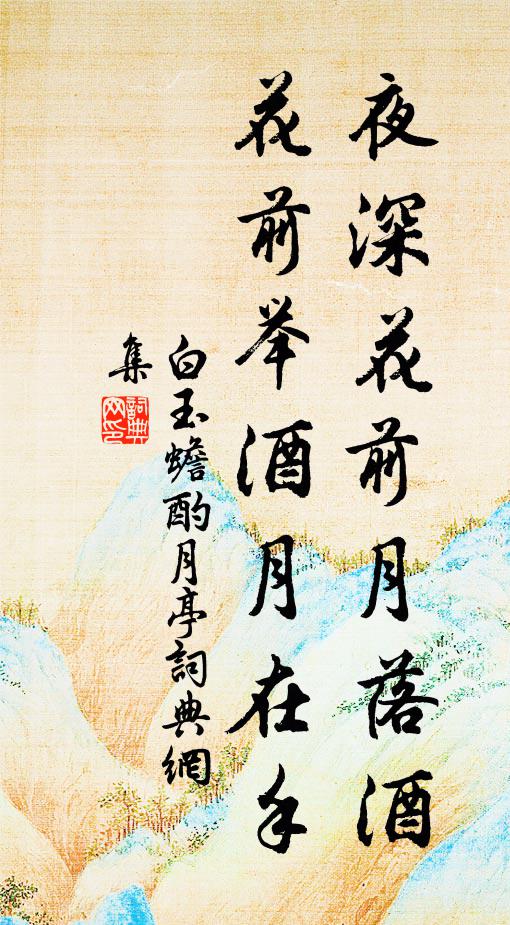 夜深花前月落酒
花前举酒月在手
白玉蟾酌月亭詞典網
集
詞典網印